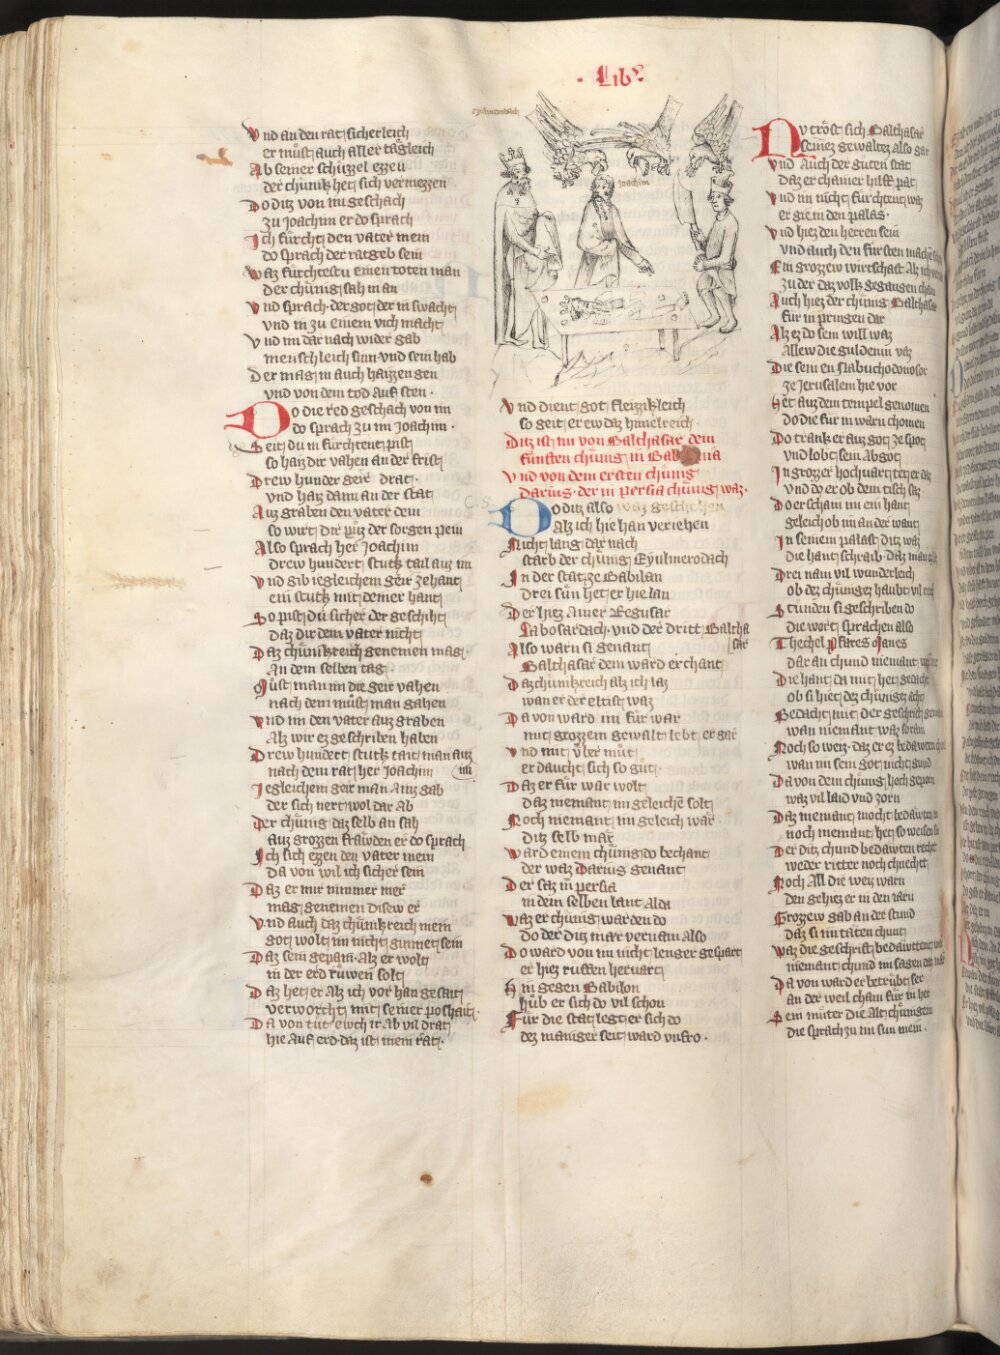 · Lib ·
Eyulmerodach
Vnd an den rat sicherleich
er můst auch aller tågleich
Ab seiner schuzzel ezzen
der chünik het sich vermezzen
Do ditz von im geschach
zu Joachim er do sprach
Ich fürcht den vater mein
do sprach der ratgeb sein
Waz fürchtestu einen toten man
der chünig sah in an
Vnd sprach der got der in swacht
vnd in zu einem vich macht
Vnd im dar nach wider gab
menschleich sinn vnd sein hab
Der mag in auch haizzen gen
vnd von dem tod auf sten ·
Do die red geschach von im
do sprach zu im Joachim ·
Seit du in fürchtent pist
so haiz dir vahen an der frist
Drew hunder geir drat ·
vnd haiz dann an der stat
Auz graben den vater dein
so wirt dir půz der sorgen pein
Also sprach her Joachim
drew hundert stuk tail auz im
Vnd gib iegleichem geir zehant
ein stuk mit deiner hant
So pist du sicher der geschiht
daz dir dein vater nicht
Daz chünikreich genemen mag ·
An dem selben tag ·
Můst man im die geir vahen
nach dem můst man gahen
Vnd im den vater auz graben
Als wir ez geschriben haben
Drew hundert stuk tait man auz im
nach dem rat her Joachim
Iegleichem geir man ainz gab
der sich nert wol dar ab
Der chünig daz selb an sah
auz grozzen fräwden er do sprach
Ich sich ezzen den vater mein
da von wil ich sicher sein
Daz er mir nimmer mer
mag genemen disew er
Vnd auch daz chünikreich mein
got wolt im nicht gunnet sein
Daz sein gepain als er wolt
in der erd růwen solt
Daz het er als ich vor han gesait
verworcht mit seiner poshait ·
Da von tüt ewch ir ab vil drat
hie auf erd daz ist mein rat ·
Joachim
Vnd dient got fleizzikleich
so geit er ew daz himelreich ·
Ditz ist nu von Balthasar dem
fünften chünig in Babilonia
Vnd von dem ersten chünig
Darius · der in persia chünig waz ·
Do ditz also waz geschehen
Als ich hie han veriehen
Nicht lang dar nach
starb der chünig Eyulmerodach
In der stat ze Babilan
drei sün het er hie lan
Der hiez ainer Regusar
Labosardach · vnd der dritt Balthasar
Also warn si genant
Balthasar dem ward er chant
Daz chunikreich als ich laz
wan er der eltist waz
Da von ward im für war
mit grozzem gewalt lebt er gar
Vnd mit vber můt
er daucht sich so gůt ·
Daz er für war wolt
daz niemant im geleiche solt
Noch niemant im geleich war
ditz selb mar
Ward einem chünig do bechant
der waz Darius genant
Der saz in persia
in dem selben lant alda
Waz er chünig warden do
do der ditz mar vernam also
Do ward von im nicht lenger gespart
er hiez ruffen hervart
Hin gegen Babilon
hůb er sich do vil schon
Für die stat legt er sich do
dez maniger seit ward vnfro ·
Nu tröst sich Balthasar
seinez gewaltez also gar
Vnd auch der guten stat
daz er chainer hilff pat
Vnd im nicht fürchtent waz
er gie in den palas ·
Vnd hiez den herren sein
vnd auch den fürsten machen
Ein grozzew wirtschaft als ich
zu der daz volk gegangen cham
Auch hiez der chünig Balthasar
für in pringen dar
Als ez do sein will waz
allew die guldenin vaz
Die sein en Nabuchodonosor
ze Jerusalem hie vor
Het auz dem tempel genomen
do die für in warn chomen
Do trank er auz got ze spot
vnd lobt sein abgot
In grozzer hochuart tet er daz
vnd do er ob dem tisch saz
Do erschain im ein hant
geleich ob im an der want
In seinem palast ditz waz
die hant schraib · daz man
Drei nam vil wunderleich
ob dez chüniges haubt
Stunden si geschriben do
die wort sprachen also
Thechel Phares Manes
dar an chund niemant
Die hant da mit het gedacht
ob si hiet dez chüniges acht
Bedacht mit der geschrift
wan niemant waz so ram
Noch so weiz · daz er ez bedawten
wan im sein got nicht gund
Da von dem chünig hoch geporn
waz vil laid vnd zorn
Daz niemant mocht bedawten
noch niemant het so weisen
Der ditz chund bedawten recht
weder ritter noch chnecht
Noch all die weil warn
den gehiez er in den iarn
Grozzew gab an der stund
daz si im taten chunt
Waz die geschrift bedawttent
niemant chund im sagen daz
Da von ward er betrübt ser
an der weil cham für in her
Sein můter die alt chünigin
die sprach zu im sun mein ·